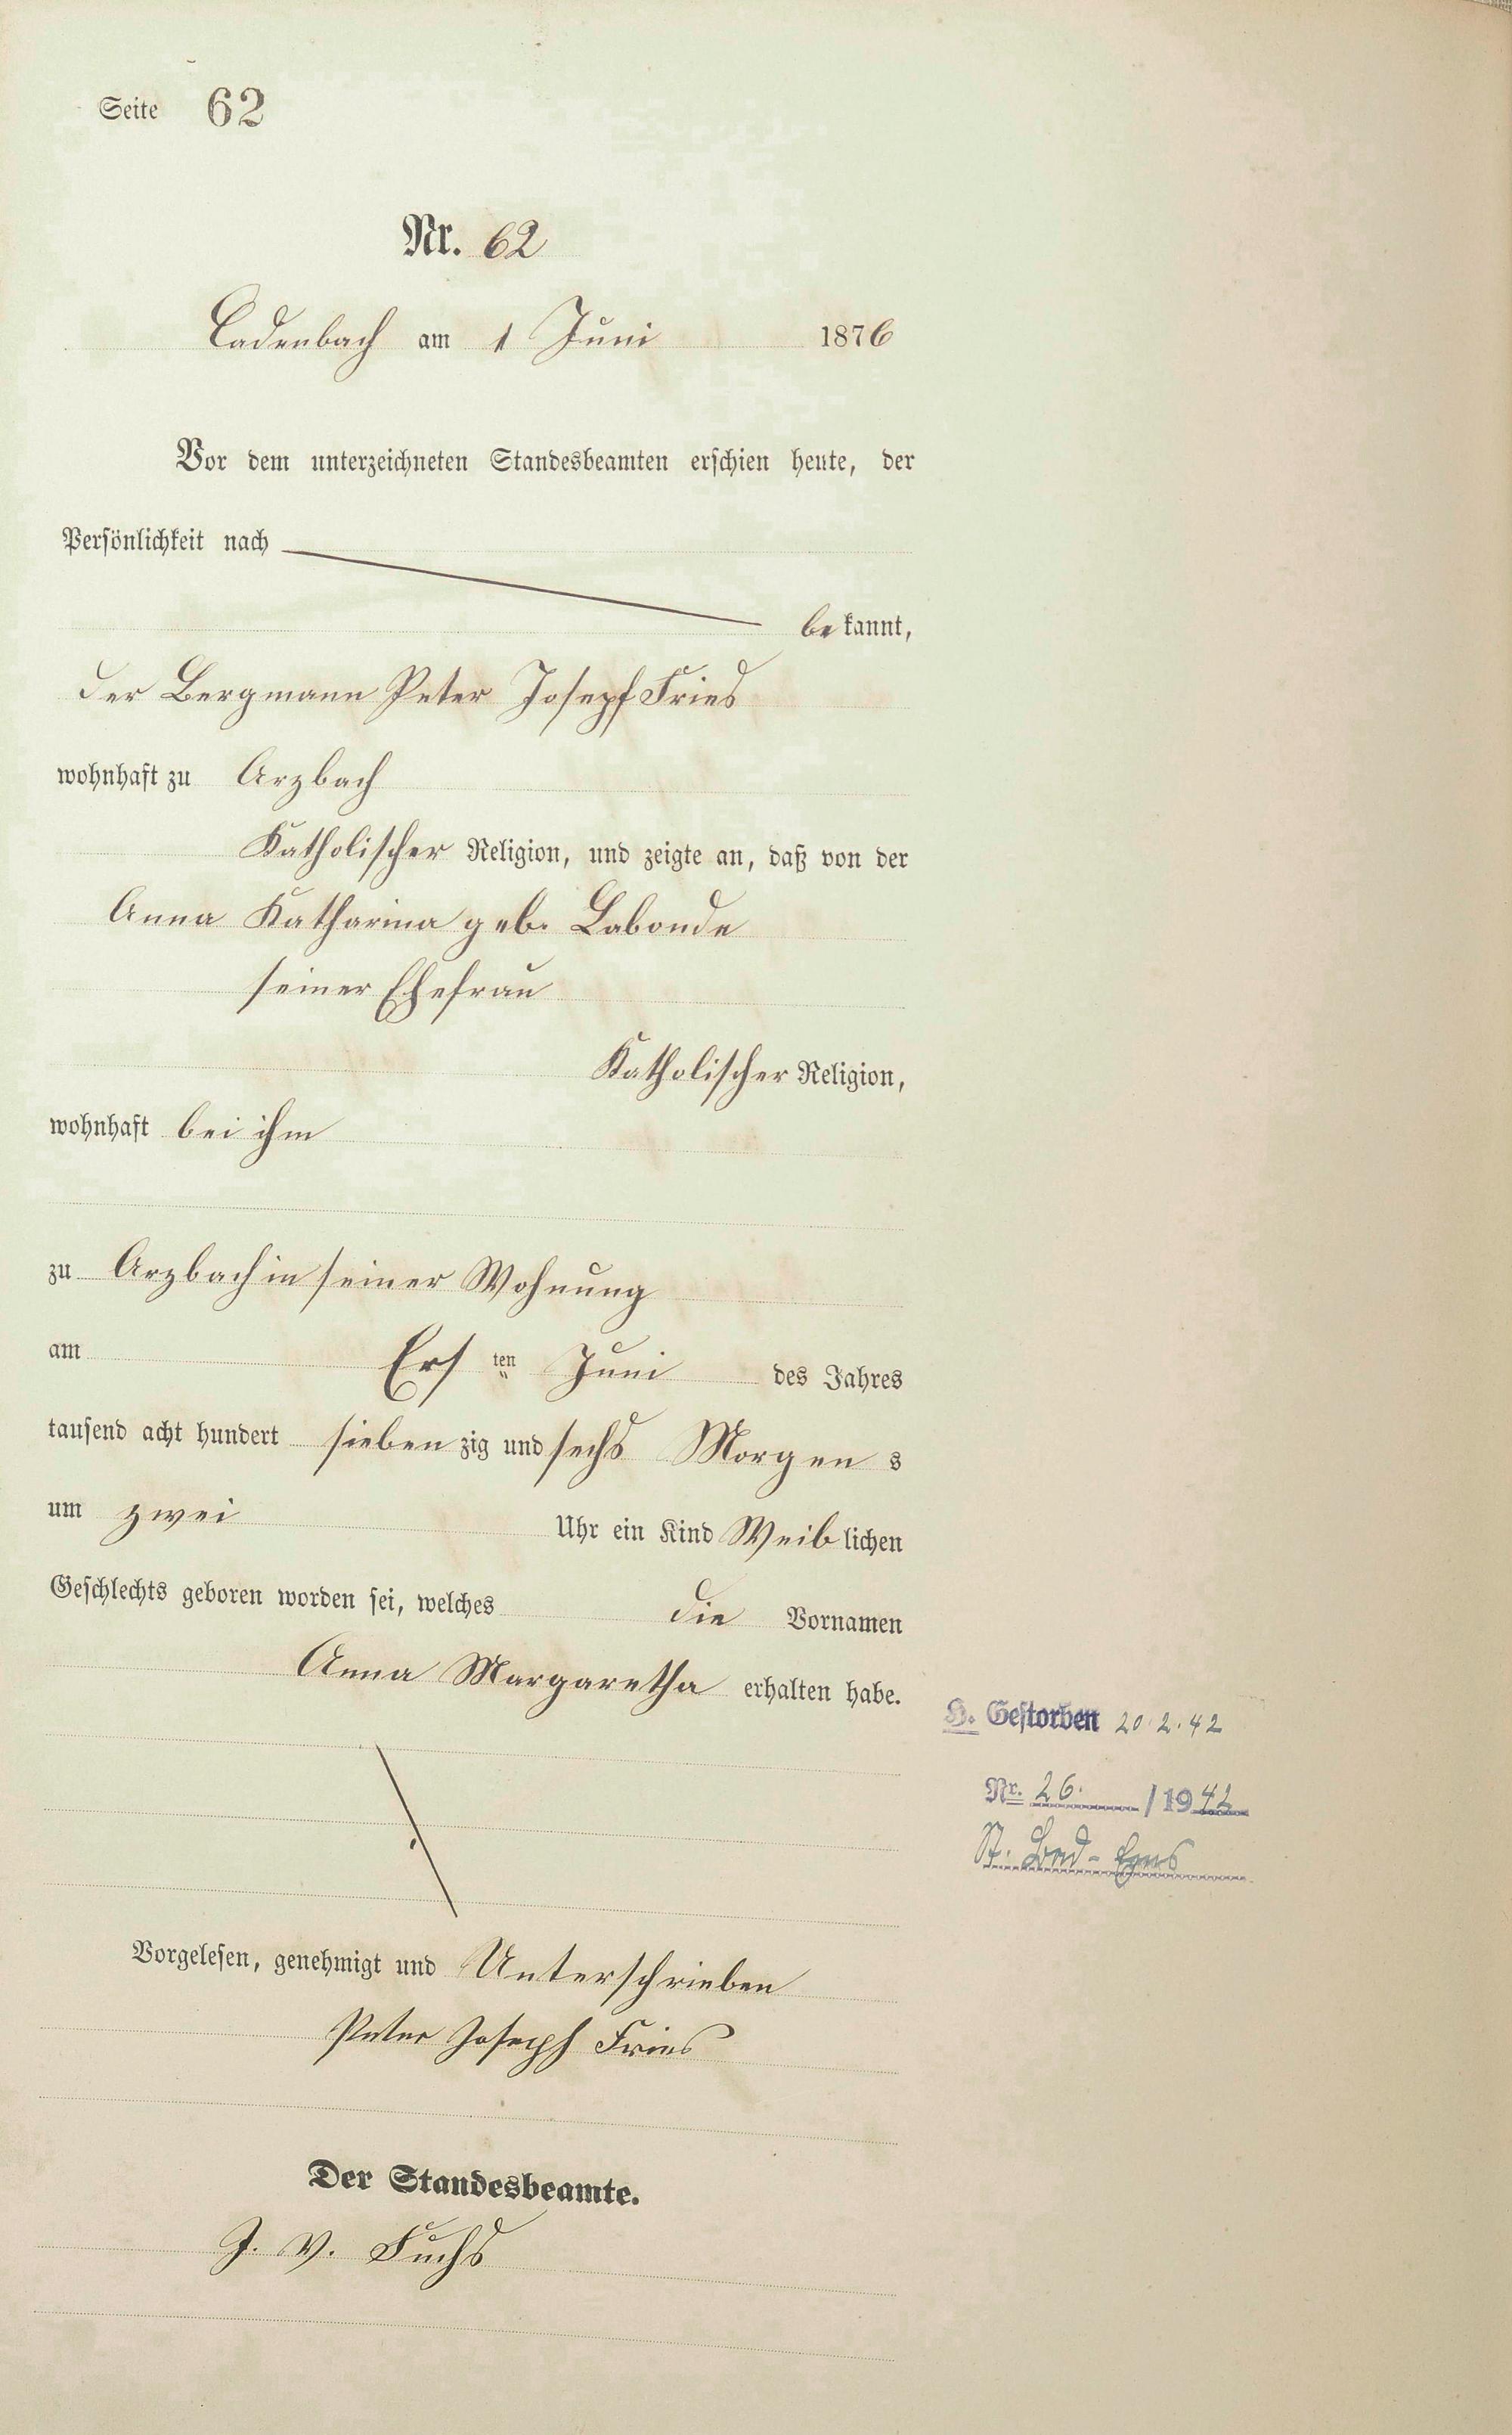 Seite 62
Nr. 62
Cadenbach am 1 Juni 1876
Vor dem unterzeichneten Standesbeamten erschien heute, der
Persönlichkeit nach
bekannt,
der Bergmann Peter Josepf Fries
wohnhaft zu Arzbach
Katholischer Religion, und zeigte an, daß von der
Anna Katharina geb. Labonde
seiner Ehefrau
Katholischer Religion,
wohnhaft bei ihm
zu Arzbach in seiner Wohnung
am Ersten Juni des Jahres
tausend acht hundert siebenzig und sechs Morgens
um zwei Uhr ein Kind Weiblichen
Geschlechts geboren worden sei, welches die Vornamen
Anna Margaretha erhalten habe.
H. Gestorben 20.2.42
Nr. 26. / 1942
St. Bad-Ems
Vorgelesen, genehmigt und Unterschrieben
Peter Joseph Fries
Der Standesbeamte.
J. V. Fuchs